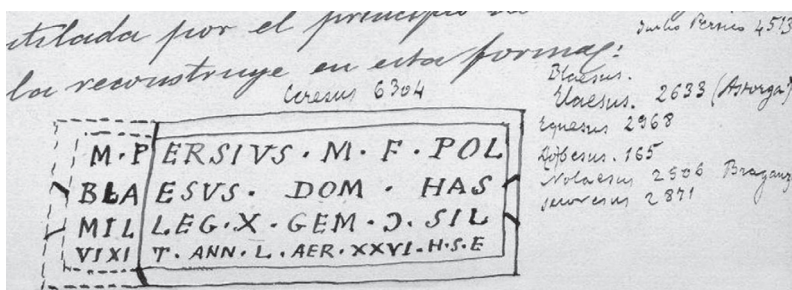 utilada por el principio
la reconstruye en esta forma:
Ceresus 6304
M·P ERSIVS·M·F·POL
BLA ESVS· DOM · HAS
MIL LEG·X·GEM·Ɔ·SIL
VIXI T·ANN·L·AER·XXVI·H·S·E
Persius 4513
Blaesus.
Elaesus. 2633 (Astorga)
Equaesus 2968
165
2506 Braganza
2871